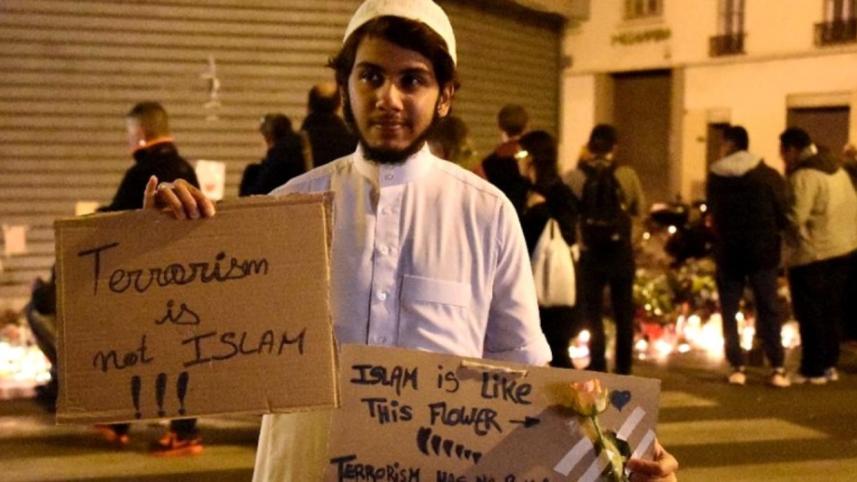 Terrorism
is
not ISLAM
!!!
ISLAM is Like
This FLOWER →
TERRORISM HAS NO